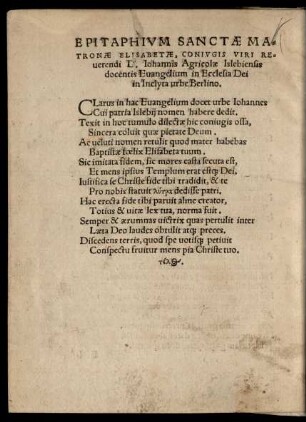 EPITAPHIVM SANCTÆ MA-
TRONÆ ELISABETÆ, CONIVGIS VIRI RE-
uerendi D. Iohannis Agricolæ Islebiensis
docentis Euangelium in Ecclesia Dei
in Inclyta urbe Berlino.
CLarus in hac Euangelium docet urbe Iohannes
Cui patria Islebij nomen habere dedit.
Texit in hoc tumulo dilectæ hic coniugis ossa,
Sincera coluit quæ pietate Deum.
Ac ueluti nomen retulit quod mater habebas
Baptistæ Elisabeta tuum.
Sic imitata fidem, sic mores casta secuta est,
Et mens ipsius Templum erat estq; Dei.
Iustifica se Christe fide tibi tradidit, & te
Pro nobis statuit λύτρα dedisse patri.
Hac erecta fide tibi paruit alme creator,
Totius & uitæ lex tua, norma fuit.
Semper & ærumnas uictrix quas pertulit inter
Læta Deo laudes obtulit atq; preces.
Discedens terris, quod spe uotisq; petiuit
Conspectu fruitur mens pia Christe tuo.